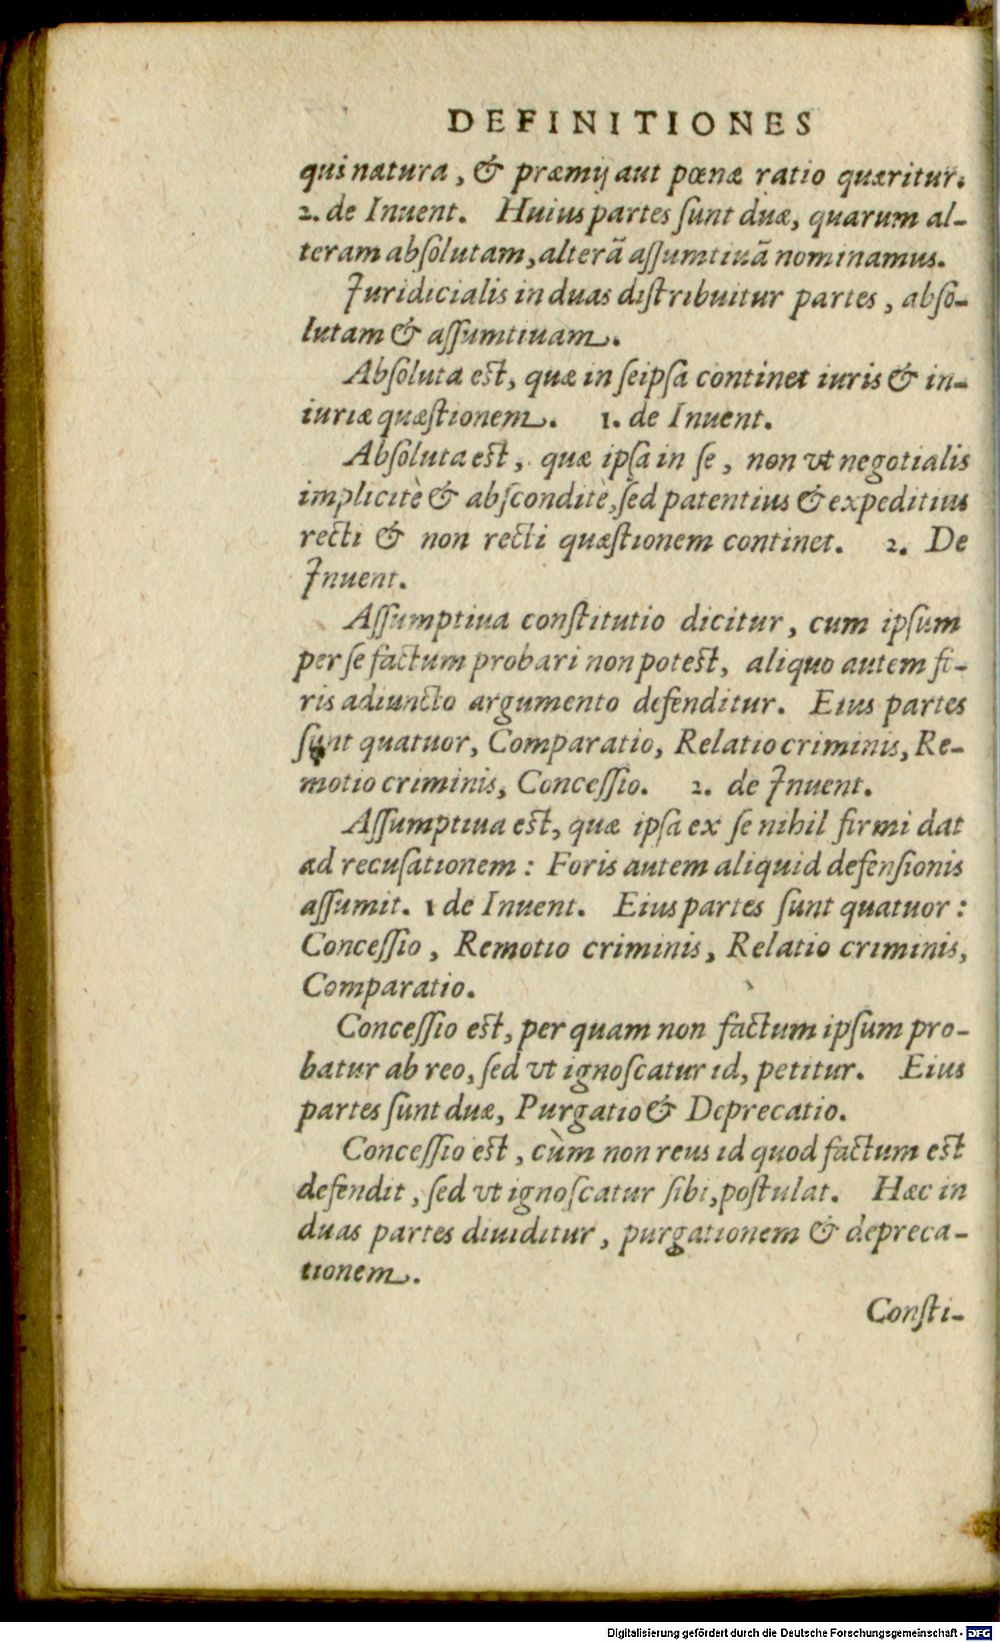 DEFINITIONES
qui natura, & præmij aut pœnæ ratio quæritur.
2. de Inuent. Huius partes ſunt duæ, quarum al-
teram abſolutam, alterã aſſumtiuã nominamus.
Juridicialis in duas diſtribuitur partes, abſo-
lutam & aſſumtiuam.
Abſoluta eſt, quæ in ſeipſa continet iuris & in-
iuriæ quæſtionem. 1. de Inuent.
Abſoluta eſt, quæ ipſa in ſe, non vt negotialis
implicitè & abſconditè, ſed patentius & expeditius
recti & non recti quæſtionem continet. 2. De
Jnuent.
Aſſumptiua conſtitutio dicitur, cum ipſum
per ſe factum probari non poteſt, aliquo autem fi-
ris adiuncto argumento defenditur. Eius partes
ſunt quatuor, Comparatio, Relatio criminis, Re-
motio criminis, Conceſſio. 2. de Jnuent.
Aſſumptiua eſt, quæ ipſa ex ſe nihil firmi dat
ad recuſationem: Foris autem aliquid defenſionis
aſſumit. 1 de Inuent. Eius partes ſunt quatuor:
Conceſſio, Remotio criminis, Relatio criminis,
Comparatio.
Conceſſio eſt, per quam non factum ipſum pro-
batur ab reo, ſed vt ignoſcatur id, petitur. Eius
partes ſunt duæ, Purgatio & Deprecatio.
Conceſſio eſt, cùm non reus id quod factum eſt
defendit, ſed vt ignoſcatur ſibi, poſtulat. Hæc in
duas partes diuiditur, purgationem & depreca-
tionem.
Conſti-
Digitalisierung gefördert durch die Deutsche Forschungsgemeinschaft - DFG